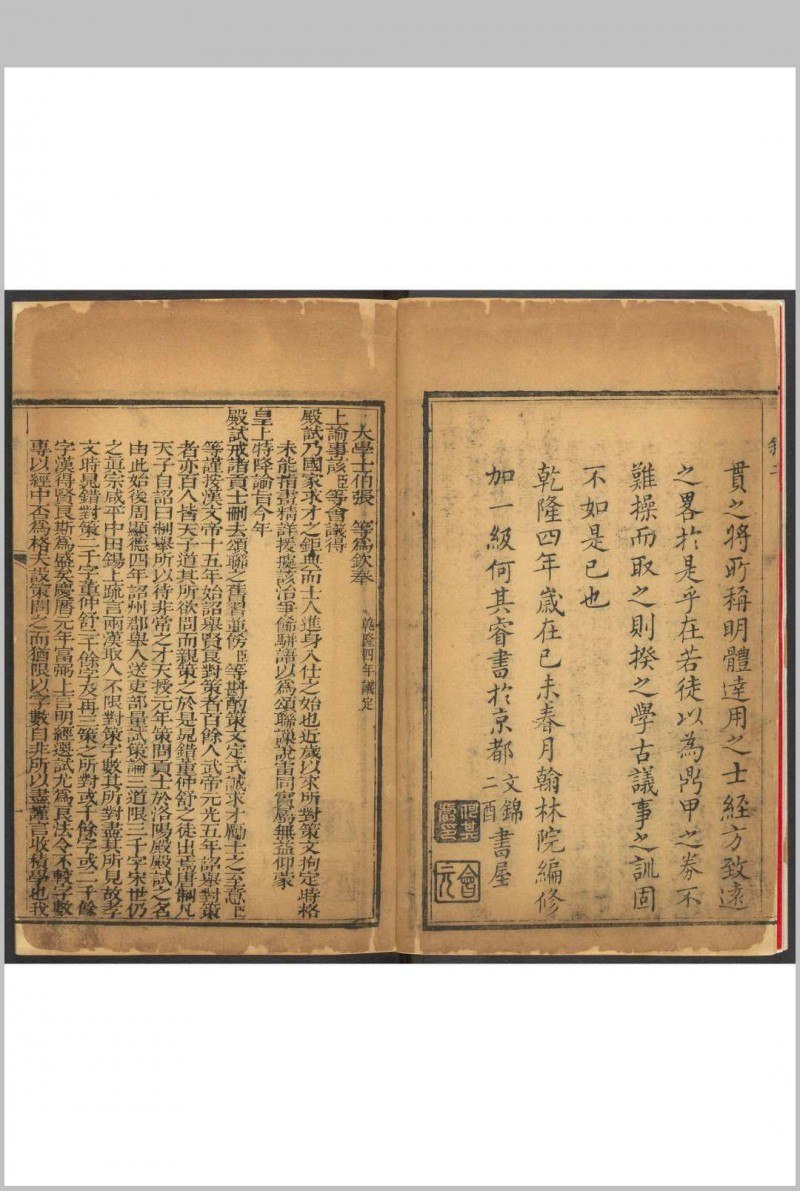 貫之將所稱明體達用之士經方致遠
之畧扵是乎在若徒以為鼎甲之券不
難操而取之則揆之學古議事之訓固
不如是已也
乾隆四年嵗在己未春月翰林院編修
加一級何其睿書扵京都文錦二酉書屋
會元
大學士伯張 等為欽奉 乾隆四年議定
上諭事該臣等會議得
殿試乃國家求才之鉅典而士人進身入仕之始也近歲以來所對策文拘定時格
未能指書精詳援據該洽爭俻駢語以為頌聯謨說雷同實属無益仰蒙
皇上特降諭旨今年
殿試戒諸貢士刪去頌聯之舊習並飭臣等斟酌策文定式誠求才勵士之至意臣
等謹按漢文帝十五年始詔舉賢良對策者百餘人武帝元光五年詔舉對策
者亦百人皆天子道其所欲問而親策之於是晁錯董仲舒之徒出焉唐制凡
天子自詔曰制舉所以待非常之才天授元年策問貢士於洛陽殿殿試之名
由此始後周顯德四年詔州郡舉人送吏部量試策論三道限三千字宋世仍
之真宗咸平中田錫上疏言兩漢取人不限對策字數其所對盡其所見故孝
文時晁錯對策二千字董仲舒三千餘字及再三策之所對或千餘字或二千餘
字漢得賢良斯為盛矣慶曆元年富弼上言明經選試尤為良法今不較字數
專以經中否為格夫設策問之而猶限以字數自非所以盡謹言收積學也我